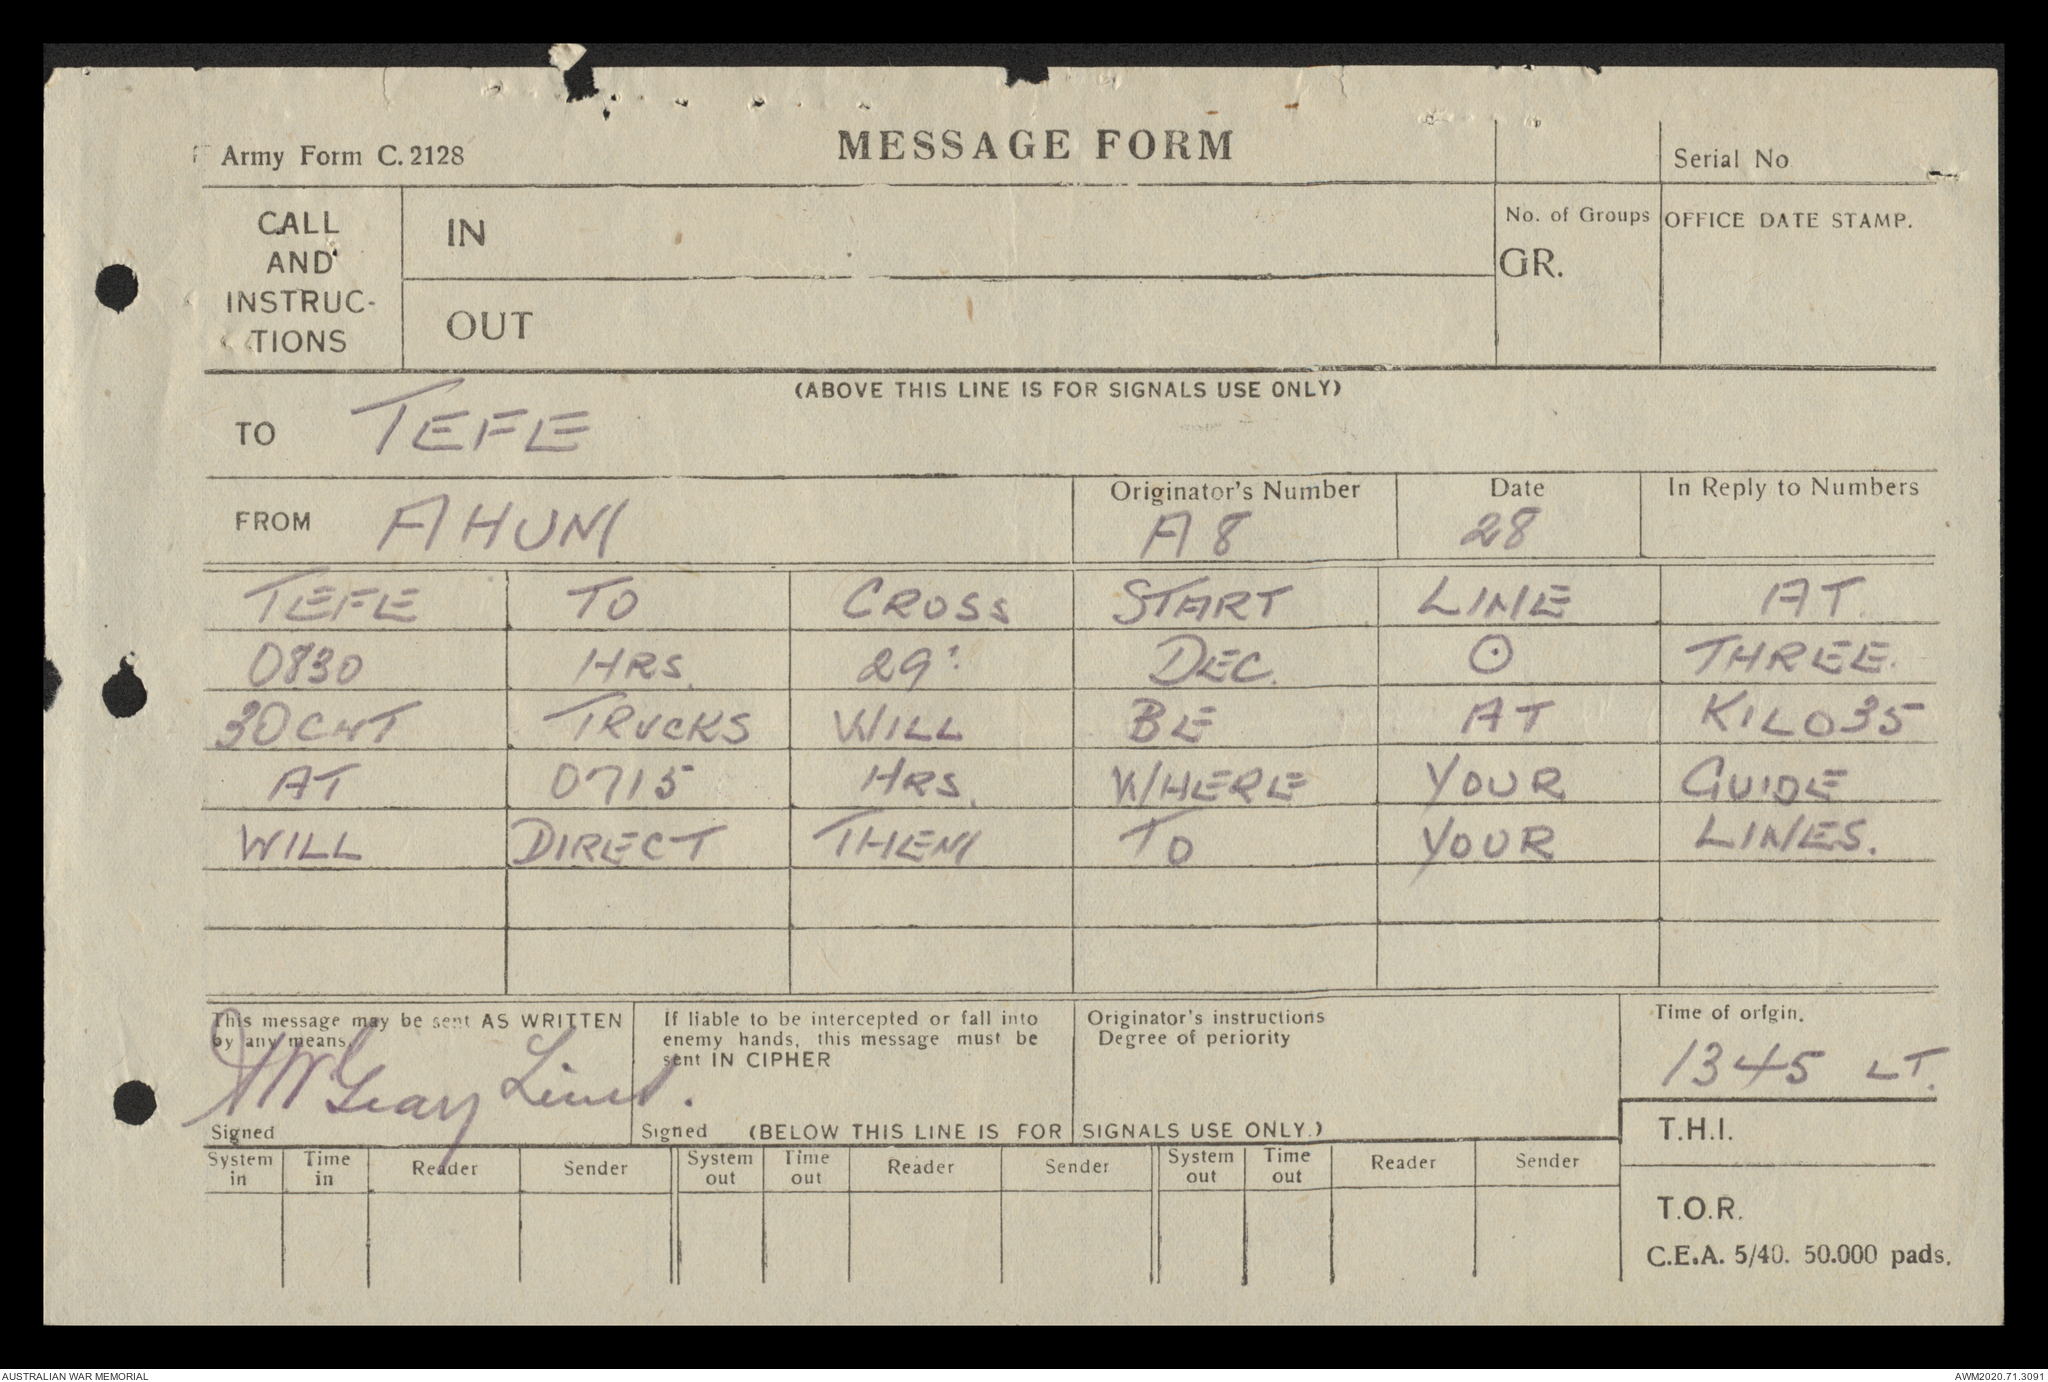 Army Form C. 2128
MESSAGE FORM
Serial No
CALL
AND
INSTRUC-
TIONS
IN
OUT
No. of Groups
GR.
OFFICE DATE STAMP.
(ABOVE THIS LINE IS FOR SIGNALS USE ONLY)
TO TEFE
FROM AHUM
Originator's Number
A8
Date
28
In Reply to Numbers
TEFE TO CROSS START LINE AT
0830 HRS. 29 DEC. ⊙ THREE
30CWT TRUCKS WILL BE AT KILO35
AT 0715 HRS. WHERE YOUR GUIDE
WILL DIRECT THEM TO YOUR LINES.
This message may be sent AS WRITTEN
by any means.
Geary Lieut.
Signed
If liable to be intercepted or fall into
enemy hands, this message must be
sent IN CIPHER
Signed
Originator's instructions
Degree of periority
Time of origin.
1345 LT.
(BELOW THIS LINE IS FOR SIGNALS USE ONLY.)
T.H.I.
System in Time in Reader Sender System out Time out Reader Sender System out Time out Reader Sender
T.O.R.
C.E.A. 5/40. 50.000 pads.
AUSTRALIAN WAR MEMORIAL
AWM2020.71.3091